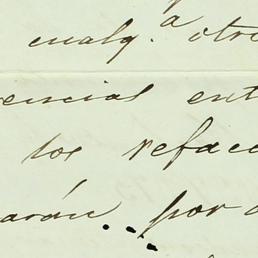 cualq.a otro
encias ent
los refacc
arán por